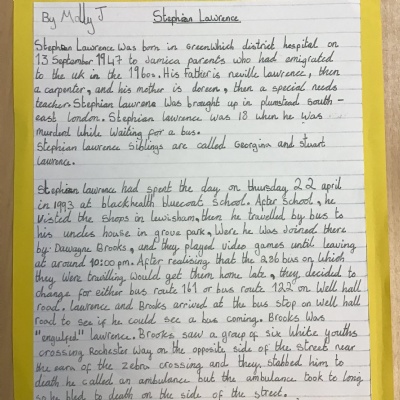 By Molly J
Stephian Lawrence
Stephian Lawrence was born in Greenwhich district hospital on
13 September 1947 to Jamica parents who had emigrated
to the uk in the 1960s. His father is neville Lawrence, then
a carpenter, and his mother is doreen, then a special needs
teacher. Stephian Lawrens was brought up in plumstead south-
east london. Stephian Lawrence was 18 when he was
murdent while waiting for a bus.
Stephian Lawrence Siblings are called Georgina and stuart
Lawrence.
Stephian Lawrence had spent the day on thursday 22 april
in 1993 at blackhealth bluecoat School. After School, he
visted the shops in lewisham, then he travelled by bus to
his uncles house in grove park, Were he was Joined there
by Dwayne Brooks, and they played video games until leaving
at around 10:00 pm. After realising that the 286 bus on which
they were travilling would get them home late, they decided to
change for either bus route 161 or bus route 122 on Well hall
road. Lawrence and Brooks arrived at the bus stop on Well hall
road to see if he could see a bus coming. Brooks was
"engulfed" lawrence. Brooks saw a group of six white youths
crossing Rochester way on the opposite side of the street near
the earra of the zebra crossing and they, stabbed him to
death he called an ambulance but the ambulance took to long
so he bled to death on the side of the street.